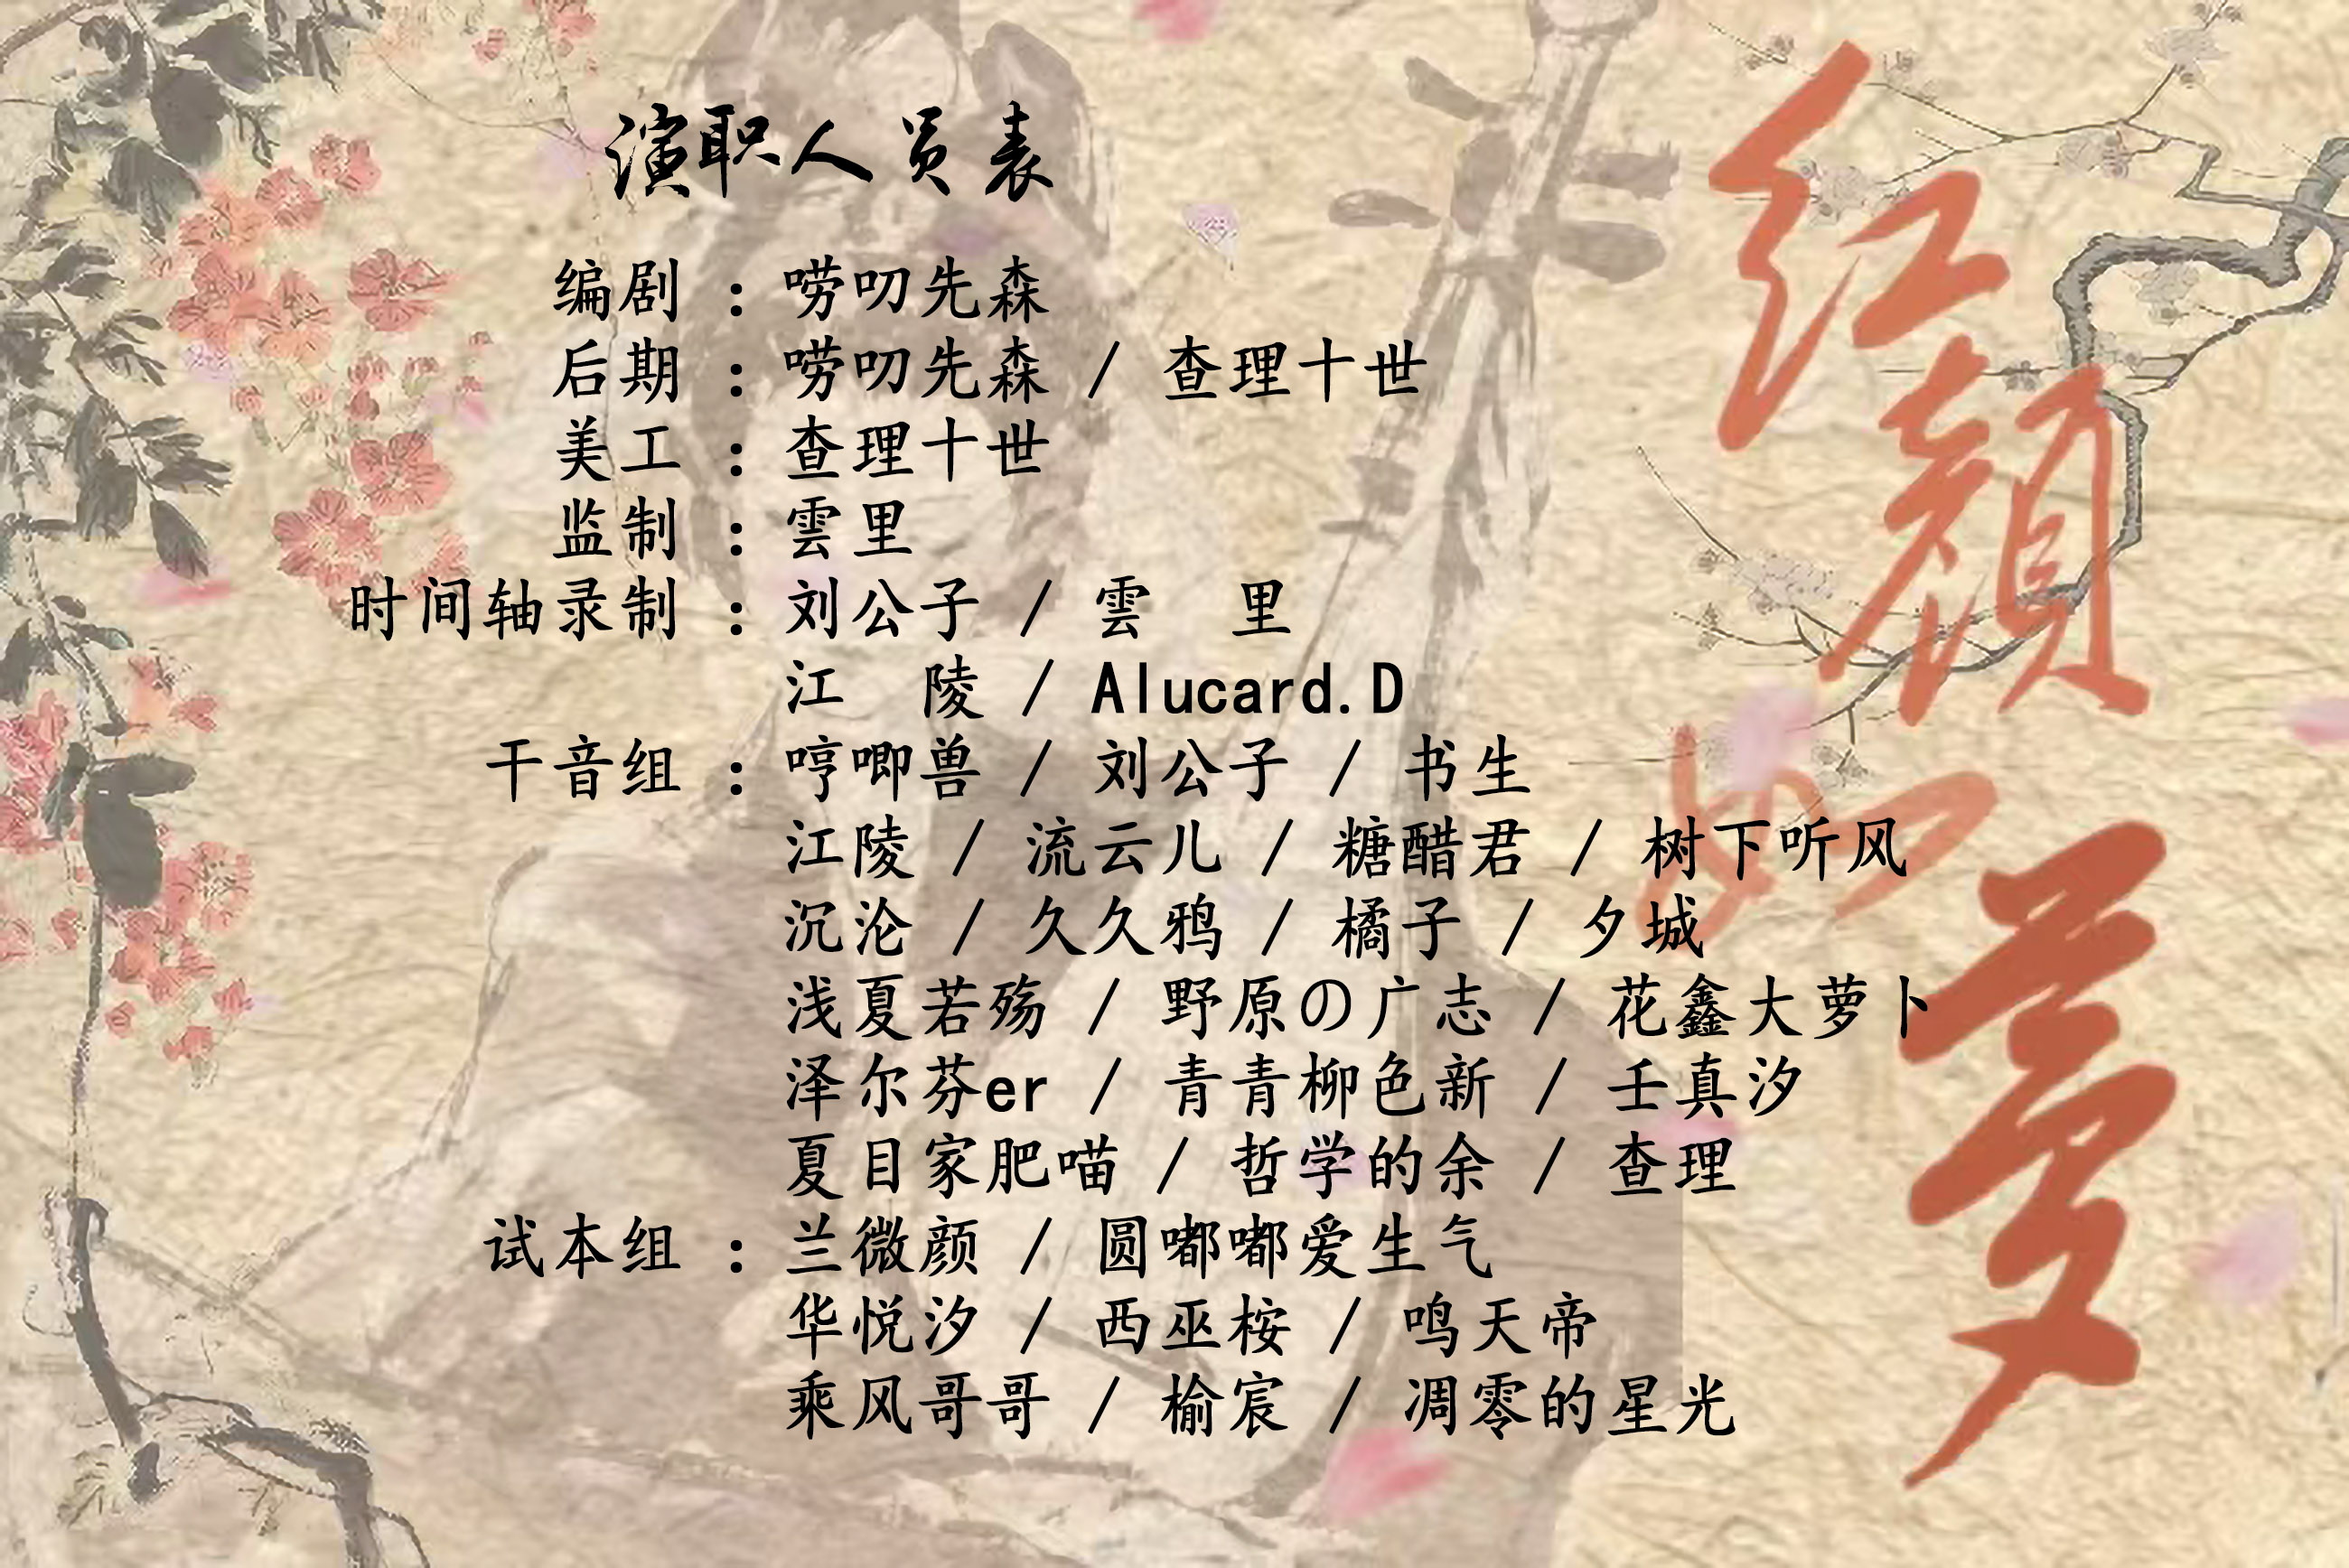 演职人员表
编剧 : 唠叨先森
后期 : 唠叨先森 / 查理十世
美工 : 查理十世
监制 : 雲里
时间轴录制 : 刘公子 / 雲 里
江 陵 / Alucard.D
干音组 : 哼唧兽 / 刘公子 / 书生
江陵 / 流云儿 / 糖醋君 / 树下听风
沉沦 / 久久鸦 / 橘子 / 夕城
浅夏若殇 / 野原の广志 / 花鑫大萝卜
泽尔芬er / 青青柳色新 / 壬真汐
夏目家肥喵 / 哲学的余 / 查理
试本组 : 兰微颜 / 圆嘟嘟爱生气
华悦汐 / 西巫桉 / 鸣天帝
乘风哥哥 / 榆宸 / 凋零的星光
红颜如梦